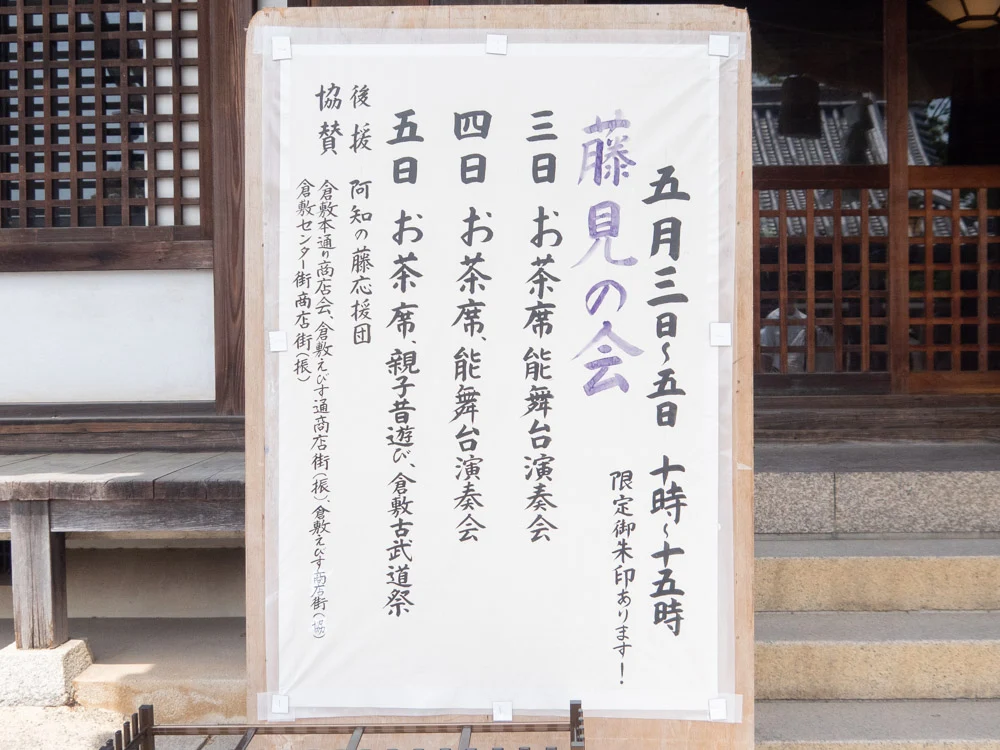 五月三日〜五日 十時〜十五時
藤見の会
限定御朱印あります！
三日 お茶席 能舞台演奏会
四日 お茶席、能舞台演奏会
五日 お茶席、親子昔遊び、倉敷古武道祭
後援 阿知の藤応援団
協賛 倉敷本通り商店会、倉敷えびす通商店街（振）、倉敷えびす商店街（協）
倉敷センター街商店街（振）